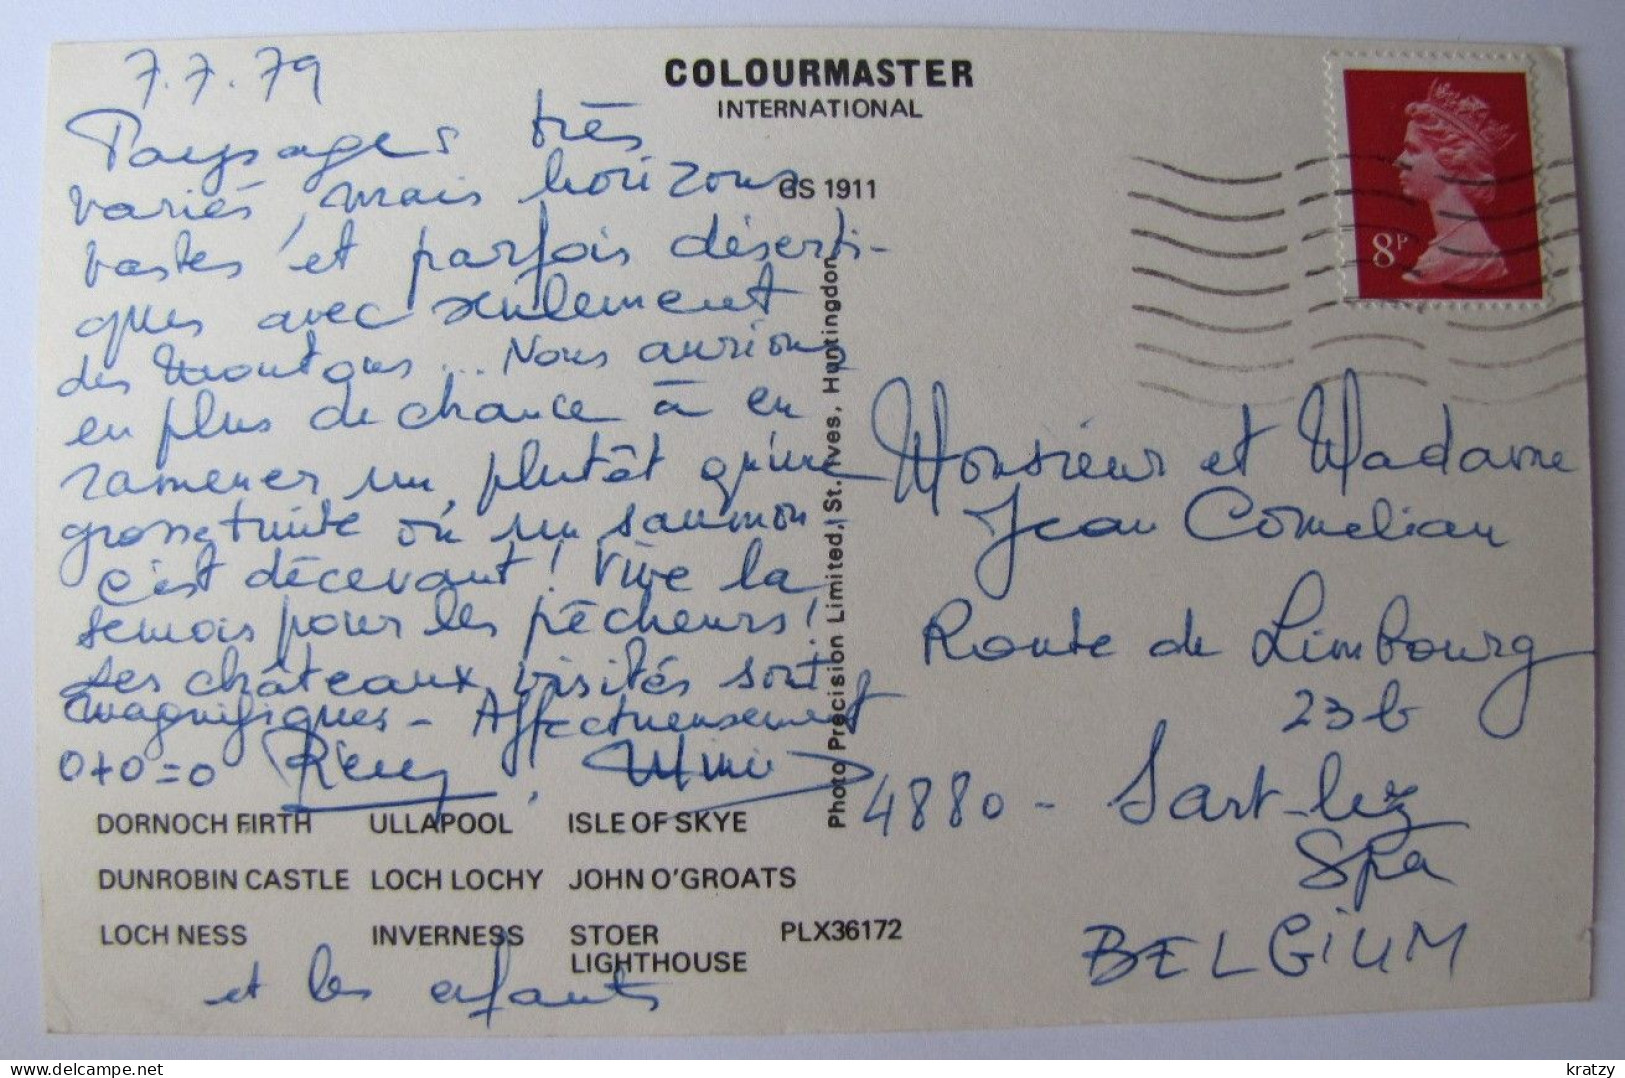 7.7.79
Paysages très
variés, mais horizons
vastes et parfois déserti-
ques avec seulement
des moutons... Nous aurions
en plus de chance à en
ramener un, plutôt qu'une
grosse truite ou un saumon
c'est décevant! Vive la
semois pour les pêcheurs!
Les châteaux visités sont
magnifiques - Affectueusement
0+0=0 Rémy, Mimi
et les enfants
COLOURMASTER
INTERNATIONAL
GS 1911
Photo Precision Limited, St. Ives, Huntingdon
8P
Monsieur et Madame
Jean Cornelian
Route de Limbourg
23 b
4880 - Sart-lez
Spa
BELGIUM
DORNOCH FIRTH ULLAPOOL ISLE OF SKYE
DUNROBIN CASTLE LOCH LOCHY JOHN O'GROATS
LOCH NESS INVERNESS STOER
LIGHTHOUSE
PLX36172
kratzy